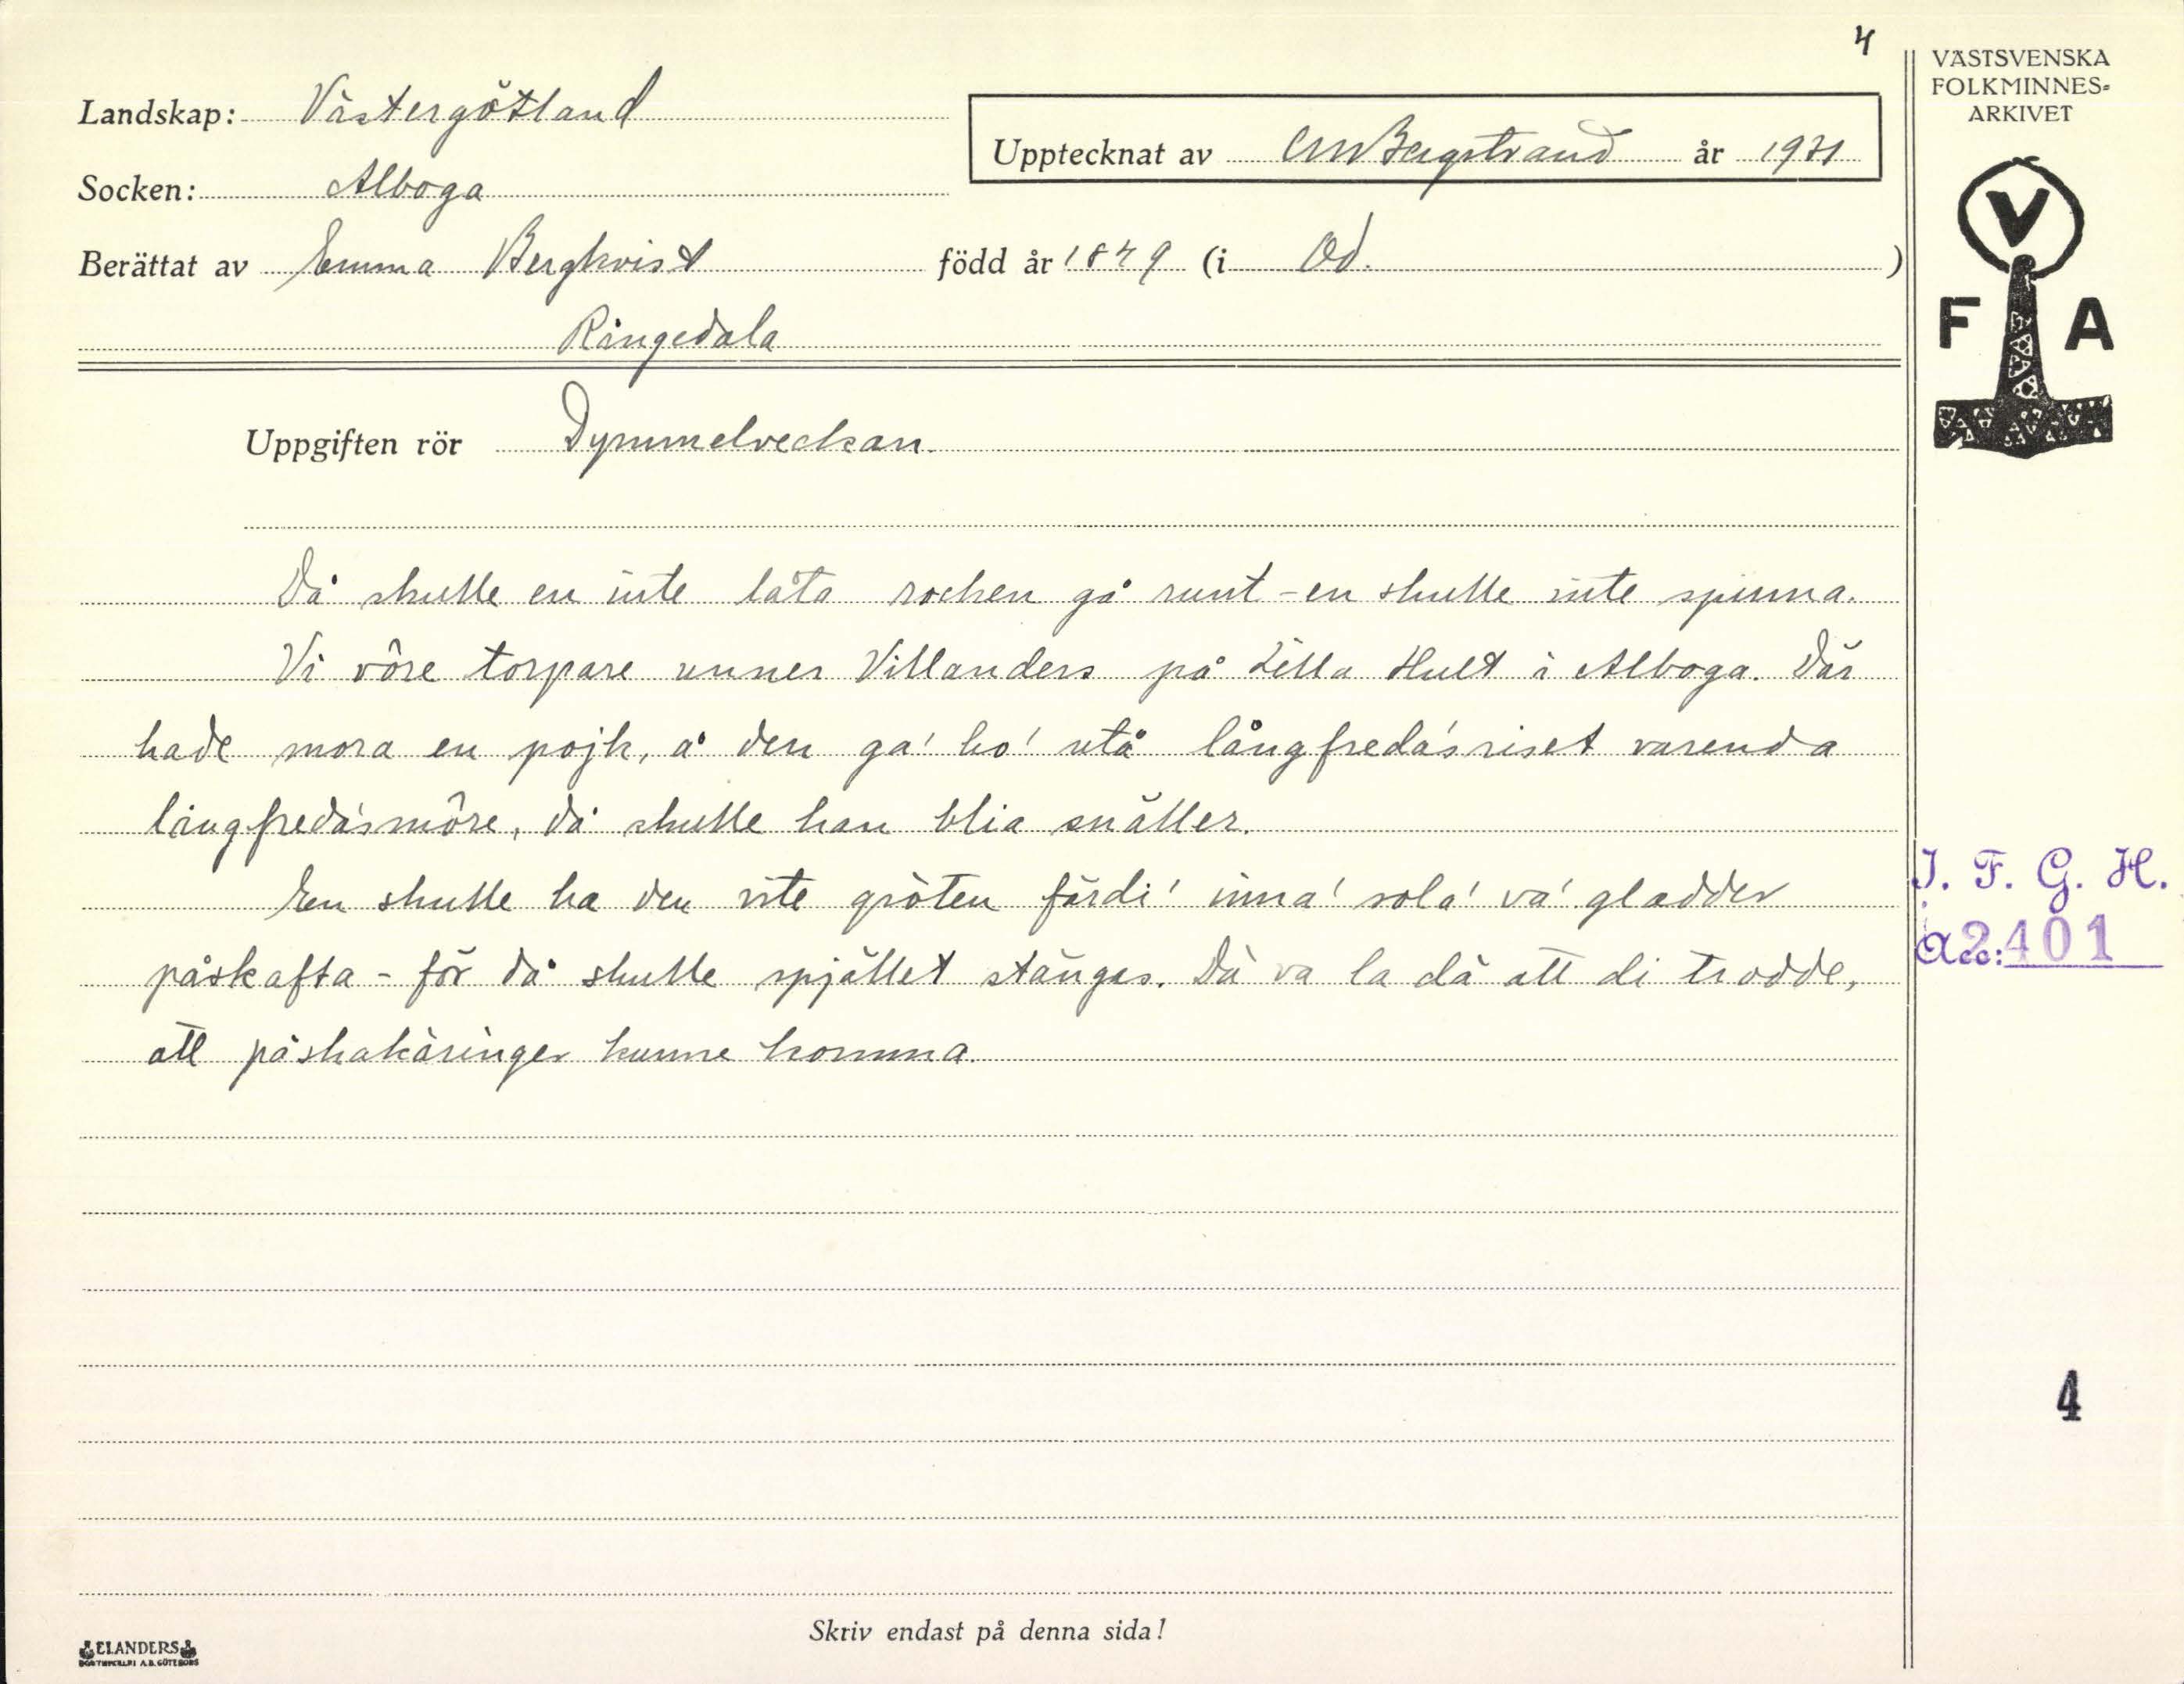 4
Landskap: Västergötland
Socken: Alboga
Upptecknat av CMBergstrand år 1931
Berättat av Emma Bergkvist född år 1849 (i Od. )
Rångedala
Uppgiften rör Dymmelveckan.
Då skulle en inte låta rocken gå runt - en skulle inte spinna.
Vi vôre torpare unner Villanders på Lilla Hult i Alboga. Där
hade mora en pojk, å den ga' ho' utå långfreda'sriset varenda
långfreda'smôre, då skulle han blia snäller.
En skulle ha den vite gröten färdi' inna' sola' va' gladder
påskafta - för då skulle spjället stängas. Dä va la dä att di trodde,
att påskakäringer kunne komma.
Skriv endast på denna sida!
ELANDERS
BOKTRYCKERI A.B. GÖTEBORG
VÄSTSVENSKA
FOLKMINNES-
ARKIVET
V
F A
I. F. G. H.
Acc: 2401
4